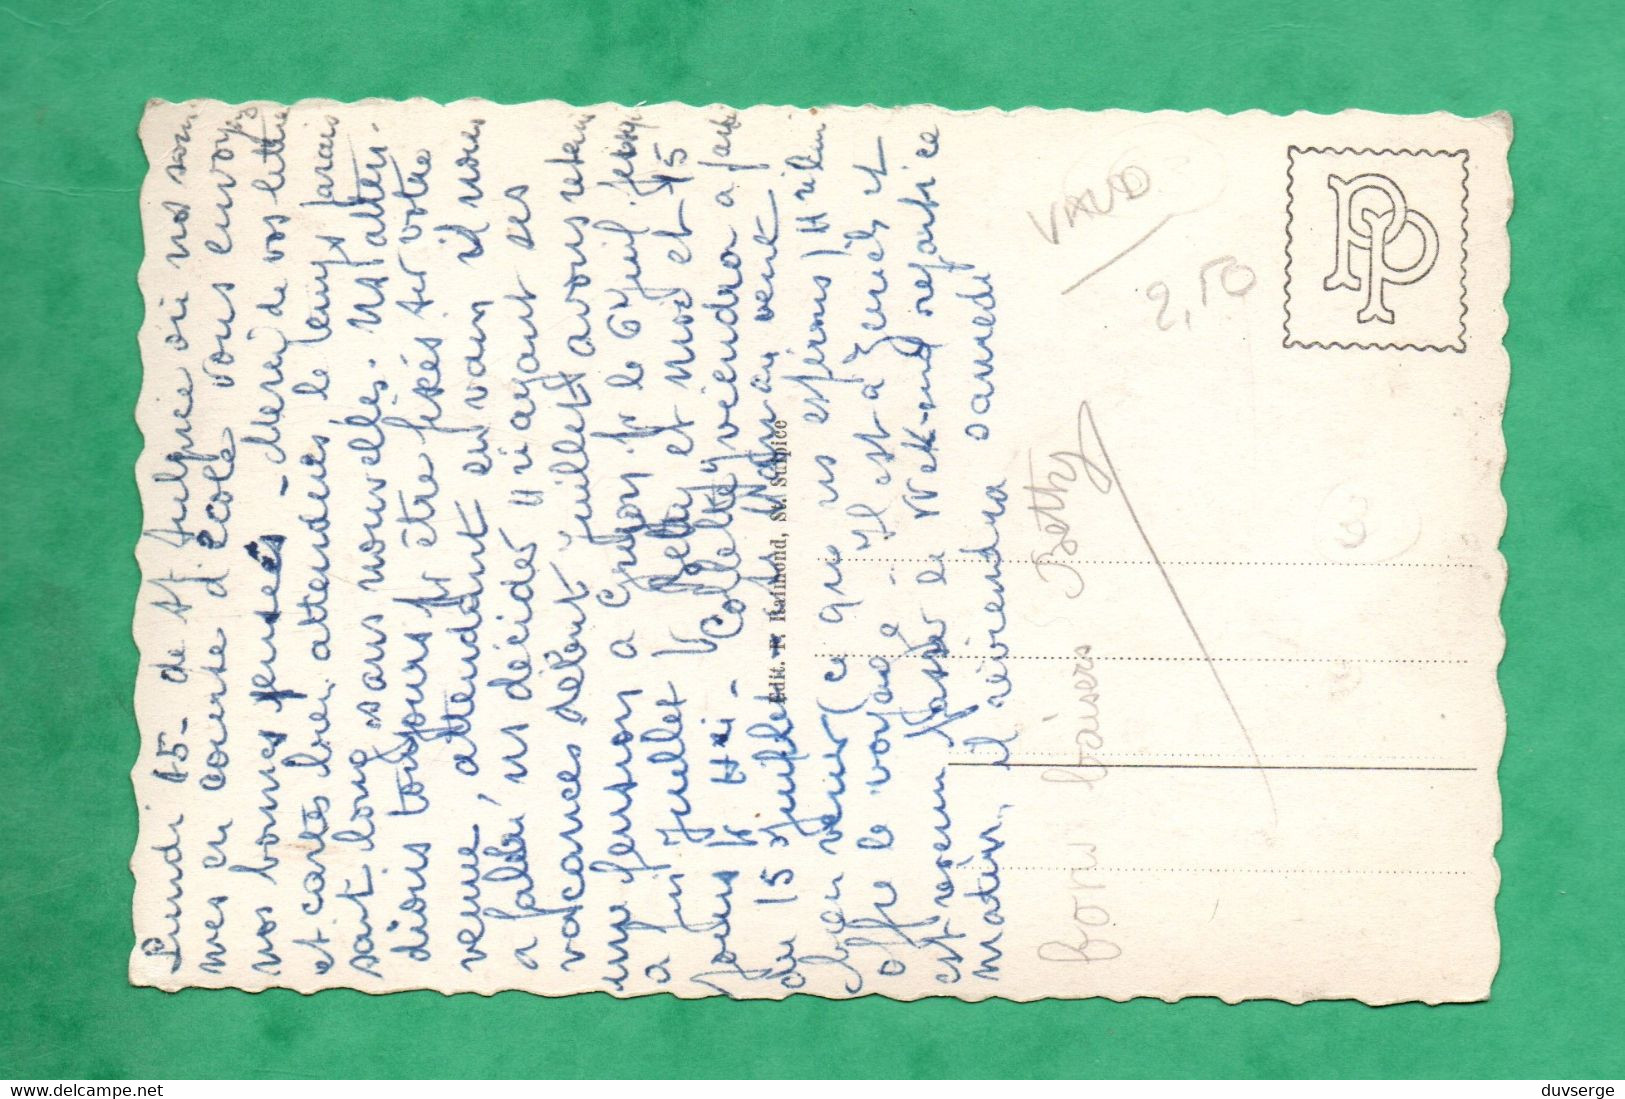 Lundi 15 - de St Sulpice où ns som
mes en course d'école vous envoyons
nos bonnes pensées - Merci de vos lettres
et cartes bien attendues, le temps parais
sait long sans nouvelles. Ns atten-
dions toujours pr être fixés sur votre
venue, attendant en vain il nous
a fallu ns décider n'ayant ses
vacances début juillet avons retenu
une pension à Gryon pr le 6 juil jusqu'
à fin juillet pr Betty et moi et 15
jours pr - Colette y viendra à partir
du 15 juillet
bien venir (ce que ns espérons)
offre le voyage Il est à Zurich et
est revenu passer le Week-end
matin, il reviendra samedi
bons baisers Betty
Edit. F. Raimond, St. Sulpice
VAUD
2,50
PP
duvserge
www.delcampe.net